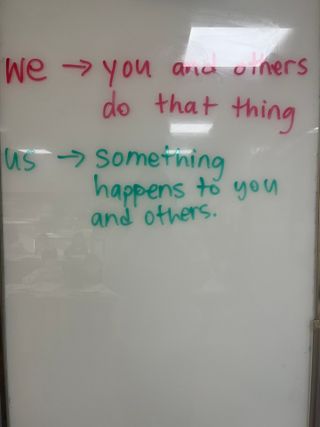 we → you and others
do that thing
us → something
happens to you
and others.